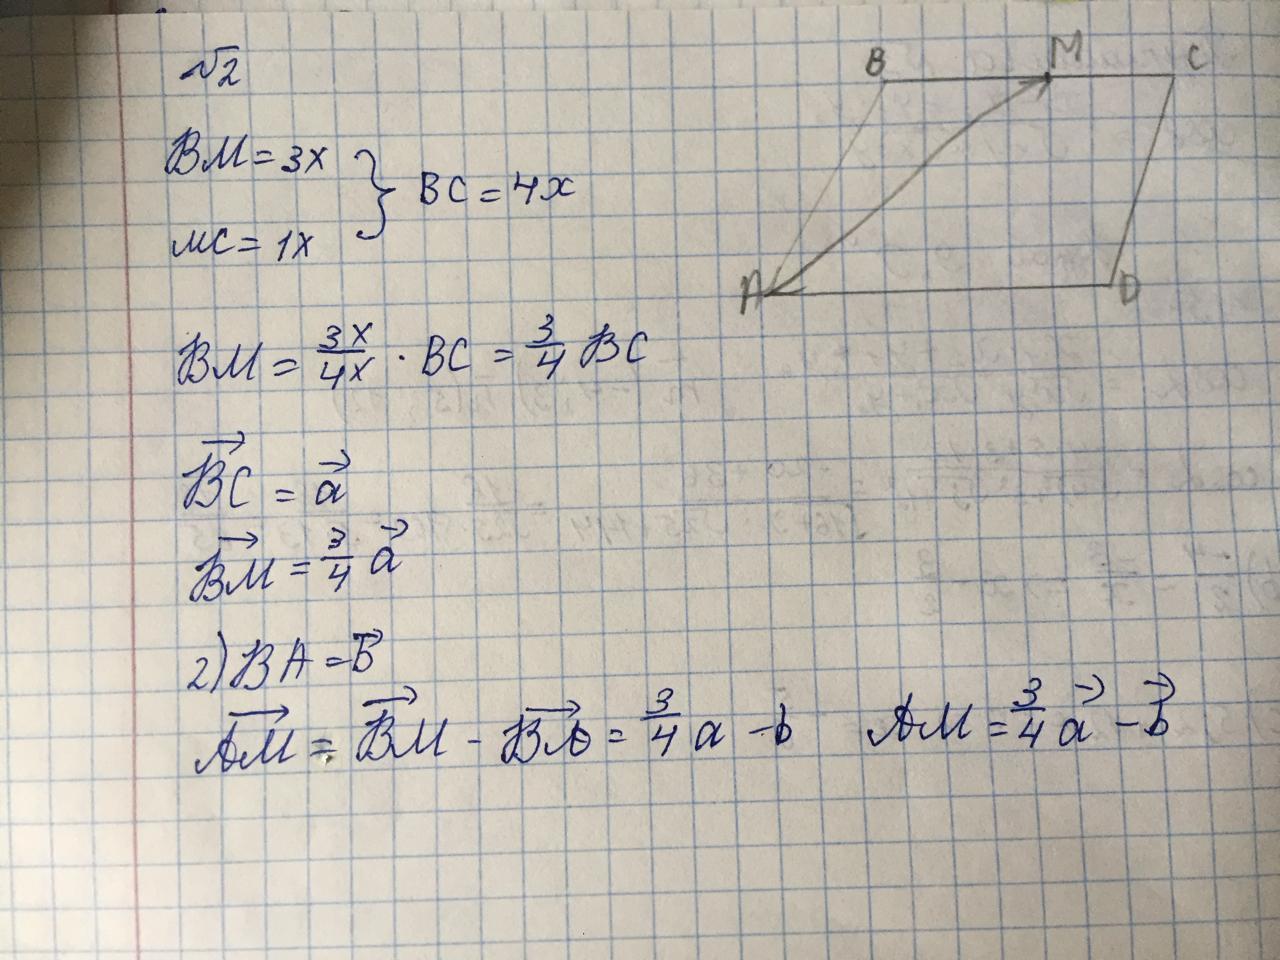 №2
B M C
BM = 3x
MC = 1x } BC = 4x
A D
BM = 3x/4x · BC = 3/4 BC
BC = a
BM = 3/4 a
2) BA = b
AM = BM - BA = 3/4 a - b AM = 3/4 a - b